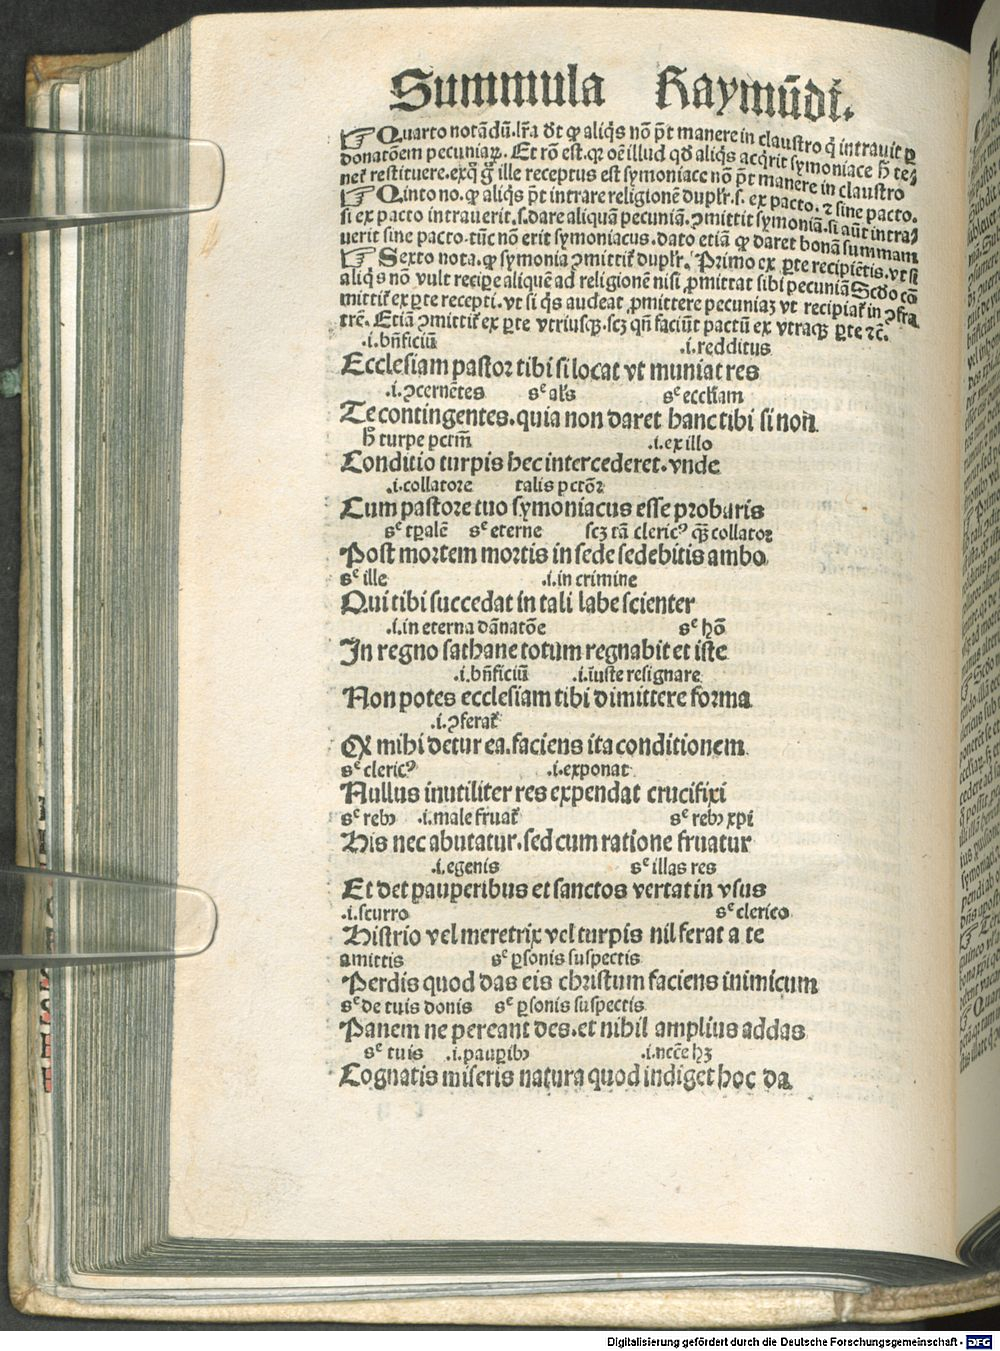 Summula Raymūdi.
☞ Quarto notādū. lr̄a dt̄ qꝙ aliq̄s nō pt̄ manere in claustro q̇ intrauit ꝑ
donatōem pecuniaꝝ. Et rō est. qꝛ oē illud qd̄ aliq̄s acq̄rit symoniace ħ te⸗
net̄ restituere. exq̇ g̊ ille receptus est symoniace nō pt̄ manere in claustro
☞ Quinto no. qꝙ aliq̄s pt̄ intrare religionē duplr̄. s. ex pacto. ⁊ sine pacto.
si ex pacto intrauerit. s. dare aliquā pecuniā. ꝯmittit symoniā. si aūt intra⸗
uerit sine pacto. tūc nō erit symoniacus. dato etiā qꝙ daret bonā summam
☞ Sexto nota. qꝙ symonia ꝯmittit̄ duplr̄. Primo ex ꝑte recipiētis. vt si
aliq̄s nō vult recipe aliquē ad religionē nisi ꝓmittat sibi pecuniā Scd̄o cō
mittit̄ ex ꝑte recepti. vt si q̄s audeat ꝓmittere pecuniaꝫ vt recipiat̄ in ꝯfra
trē. Etiā ꝯmittit̄ ex ꝑte vtriusqꝫ. scꝫ qn̄ faciūt pactū ex vtraqꝫ ꝑte ⁊c̄.
.i. bn̄ficiū .i. redditus
Ecclesiam pastor tibi si locat vt muniat res
.i. ꝯcernētes sᵉ al̄s sᵉ eccl̄iam
Te contingentes. quia non daret hanc tibi si non
ħ turpe pctm̄ .i. ex illo
Conditio turpis hec intercederet. vnde
.i. collatore talis pctōꝛ
Cum pastore tuo symoniacus esse probaris
sᵉ tꝑalē sᵉ eterne scꝫ tā cleric⁹ qꝫ̄ collator
Post mortem mortis in sede sedebitis ambo
sᵉ ille .i. in crimine
Qui tibi succedat in tali labe scienter
.i. in eterna dānatōe sᵉ hō
In regno sathane totum regnabit et iste
.i. bn̄ficiū .i. iuste resignare
Non potes ecclesiam tibi dimittere forma
.i. ꝯferat̄
Qꝙ mihi detur ea. faciens ita conditionem
sᵉ cleric⁹ .i. exponat
Nullus inutiliter res expendat crucifixi
sᵉ rebꝰ .i. male fruat̄ sᵉ rebꝰ xpi
His nec abutatur. sed cum ratione fruatur
.i. egenis sᵉ illas res
Et det pauperibus et sanctos vertat in vsus
.i. scurro sᵉ clerico
Histrio vel meretrix vel turpis nil ferat a te
amittis sᵉ ꝑsonis suspectis
Perdis quod das eis christum faciens inimicum
sᵉ de tuis donis sᵉ ꝑsonis suspectis
Panem ne pereant des. et nihil amplius addas
sᵉ tuis .i. pauꝑibꝰ .i. nec̄e hꝫ
Cognatis miseris natura quod indiget hoc da
Digitalisierung gefördert durch die Deutsche Forschungsgemeinschaft - DFG